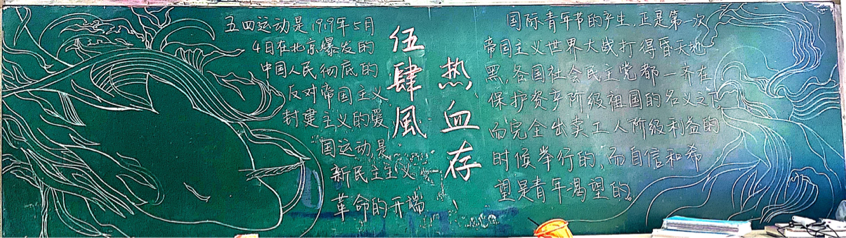 五四运动是1919年5月
4日在北京爆发的
中国人民彻底的
反对帝国主义
封建主义的爱
国运动是
新民主主义
革命的开端
伍肆風
热血存
国际青年节的产生,正是第一次
帝国主义世界大战打得昏天地
黑,各国社会民主党都一齐在
保护资产阶级祖国的名义之下
而完全出卖工人阶级利益的
时候举行的,而自信和希
望是青年渴望的